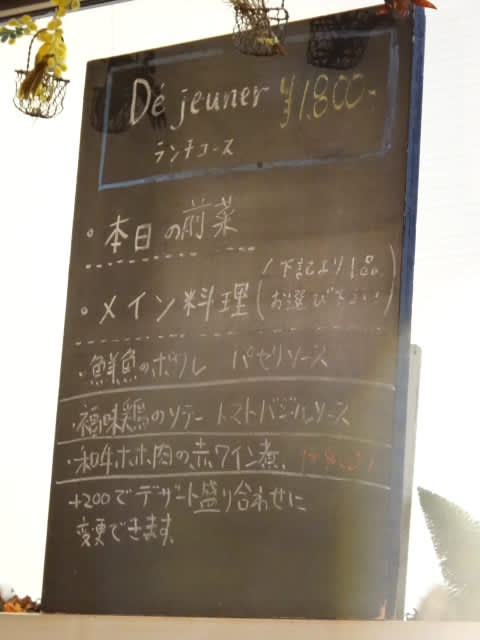 Déjeuner ¥1,800-
ランチコース
。本日の前菜
・メイン料理(下記より1品お選び下さい)
・鮮魚のポワレ パセリソース
・福味鶏のソテー トマトバジルソース
・和牛ホホ肉の赤ワイン煮
+200でデザート盛り合わせに
変更できます